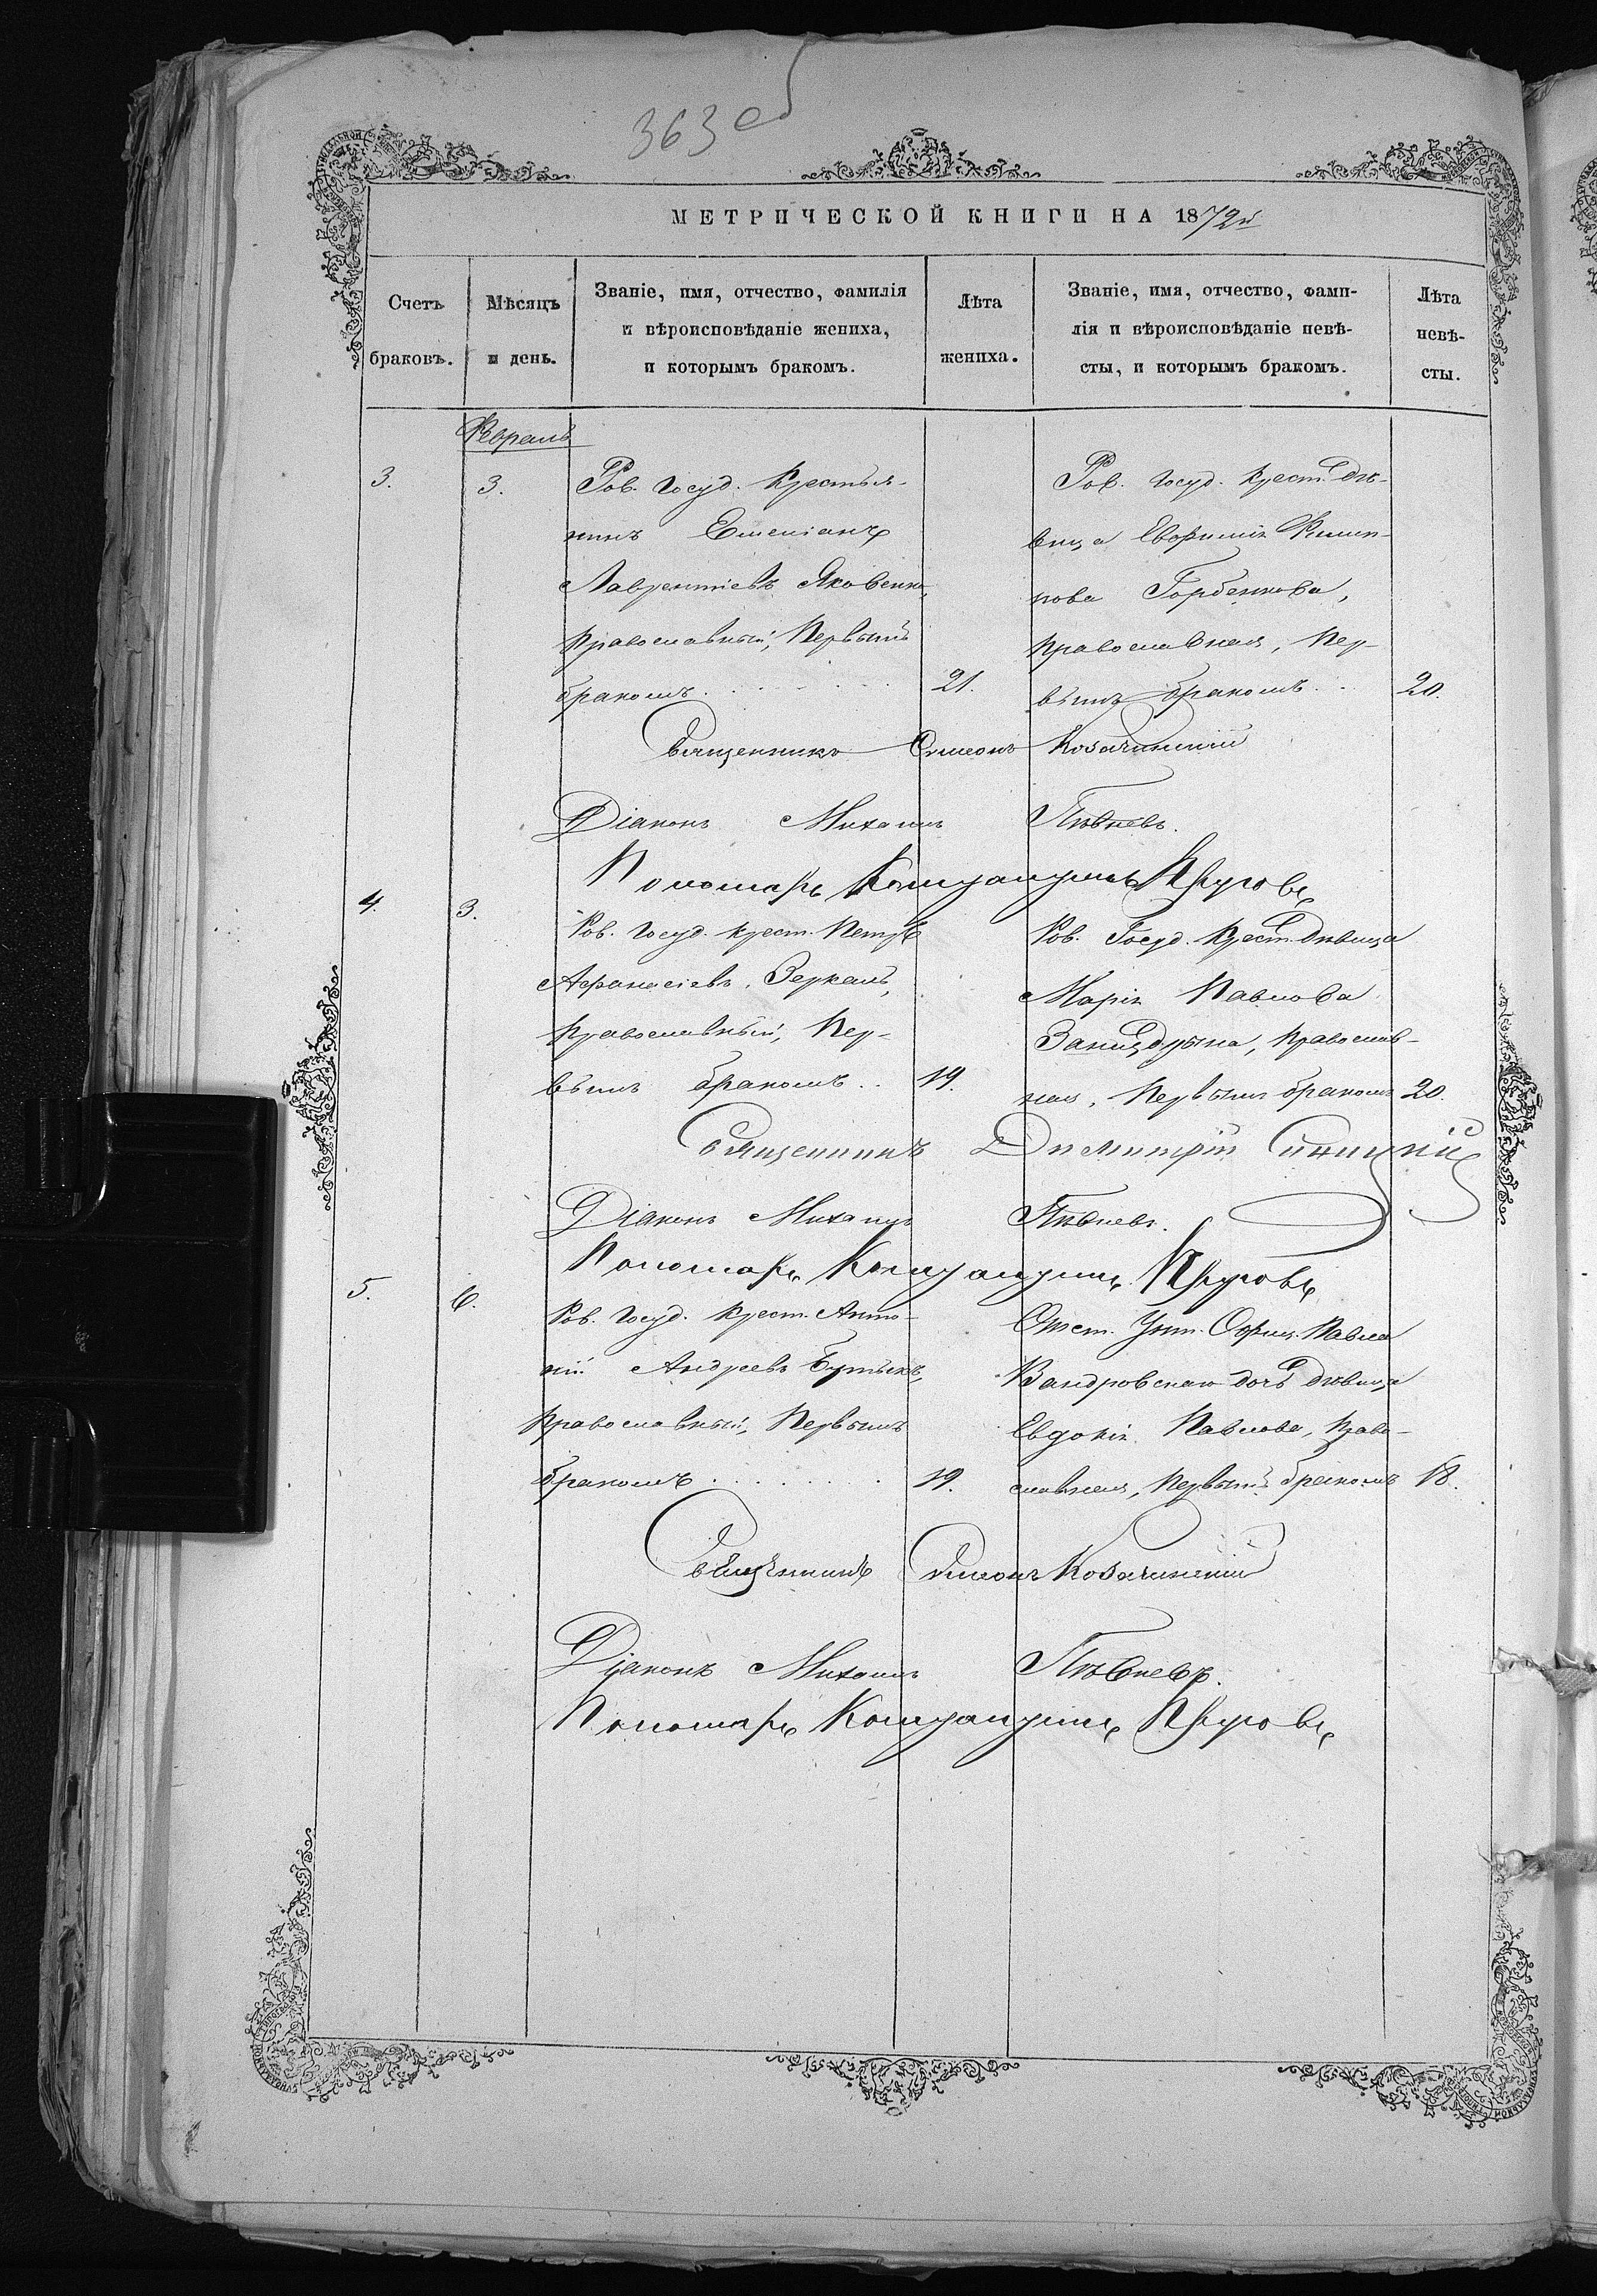 363 об
МЕТРИЧЕСКОЙ КНИГИ НА 1872й
Счетъ браковъ.
Мѣсяцъ и день.
Званіе, имя, отчество, фамилія
и вѣроисповѣданіе жениха,
и которымъ бракомъ.
Лѣта жениха.
Званіе, имя, отчество, фами-
лія и вѣроисповѣданіе невѣ-
сты, и которымъ бракомъ.
Лѣта
невѣ-
сты.
Февраль
3.
3.
Ров. Госуд. Крестья-
нинъ Емеліанъ
Лаврентіевъ Яковенко,
Православный, Первымъ
бракомъ
21.
Ров. Госуд. Крест. дѣ-
вица Евфимія Филип-
пова Горбенкова,
Православная, Пер-
вымъ бракомъ
20.
Священникъ Симеонъ Козачинскій
Діаконъ Михаилъ Пѣвневъ.
Пономарь Прузовъ
4.
3.
Ров. Госуд. Крест. Петръ
Афанасіевъ Зеркаль,
Православный, Пер-
вымъ бракомъ
19.
Ров. Госуд. Крест. дѣвица
Марія Павлова
Православ-
ная, Первымъ бракомъ
20.
Священникъ Димитрій Синицкій
Діаконъ Михаилъ Пѣвневъ.
Пономарь Прузовъ
5.
6.
Ров. Госуд. Крест. Анто-
ній Андреевъ
Православный, Первымъ
бракомъ
19.
Отст. Унт. Офиц. Павла
Вандровскаго дочь дѣвица
Евдокія Павлова, Право-
славная, Первымъ бракомъ
18.
Священникъ Симеонъ Козачинскій
Діаконъ Михаилъ Пѣвневъ.
Пономарь Прузовъ